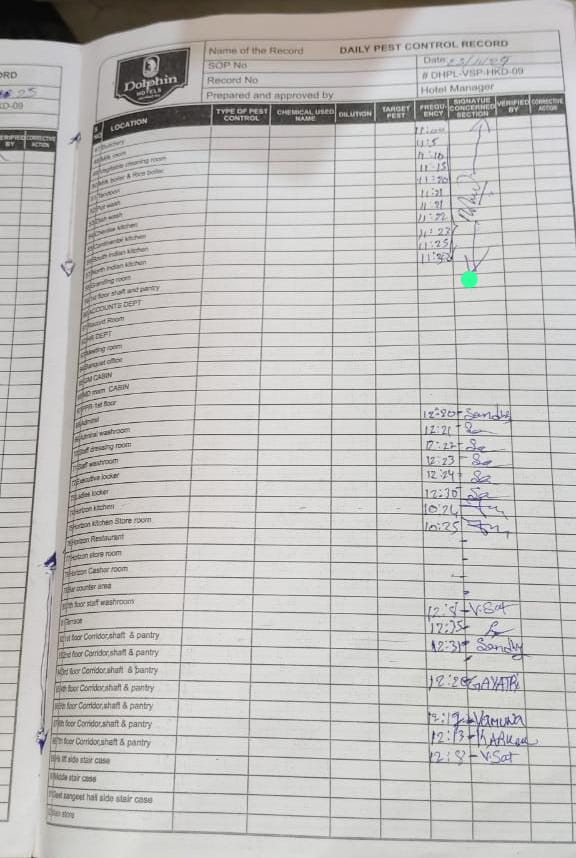 ORD
25
KD-09
VERIFIED BY CORRECTIVE ACTION
Dolphin
HOTELS
Name of the Record DAILY PEST CONTROL RECORD
SOP No Date
Record No # DHPL-VSP-HKD-09
Prepared and approved by Hotel Manager
S NO LOCATION TYPE OF PEST CONTROL CHEMICAL USED NAME DILUTION TARGET PEST FREQU-ENCY SIGNATUE CONCERNED SECTION VERIFIED BY CORRECTIVE ACTION
Butchery 11:00
Milk room 11:5
Vegetable cleaning room 11:10
Milk boiler & Rice boiler 11:15
Tandoori 11:20
Pot wash 11:21
Dish wash 11:21
Chinese kitchen 11:22
Continental kitchen 11:23
South indian kitchen 11:25
North indian kitchen 11:30
Granding room
1st floor shaft and pantry
ACCOUNTS DEPT
Record Room
HR DEPT
Meeting room
Banquet office
GM CABIN
MD mam CABIN
1st floor
Admiral 12:20 Sandhy
Admiral washroom 12:21
Staff dressing room 12:22
Staff washroom 12:23
Executive locker 12:24
Ladies locker 12:30
Horizon kitchen 10:24
Horizon Kitchen Store room 10:25
Horizon Restaurant
Horizon store room
Horizon Cashar room
Bar counter area
floor staff washroom 12:8 - V.Sat
Terrace 12:35
1st floor Corridor,shaft & pantry 12:31 Sandhy
2nd floor Corridor,shaft & pantry
3rd floor Corridor,shaft & pantry 12:20 GAYATRI
4th floor Corridor,shaft & pantry
5th floor Corridor,shaft & pantry 12:19 - Yamuna
floor Corridor,shaft & pantry 12:13 -
7th floor Corridor,shaft & pantry 12:8 - V.Sat
lift side stair case
Middle stair case
sangeet hall side stair case
Main store